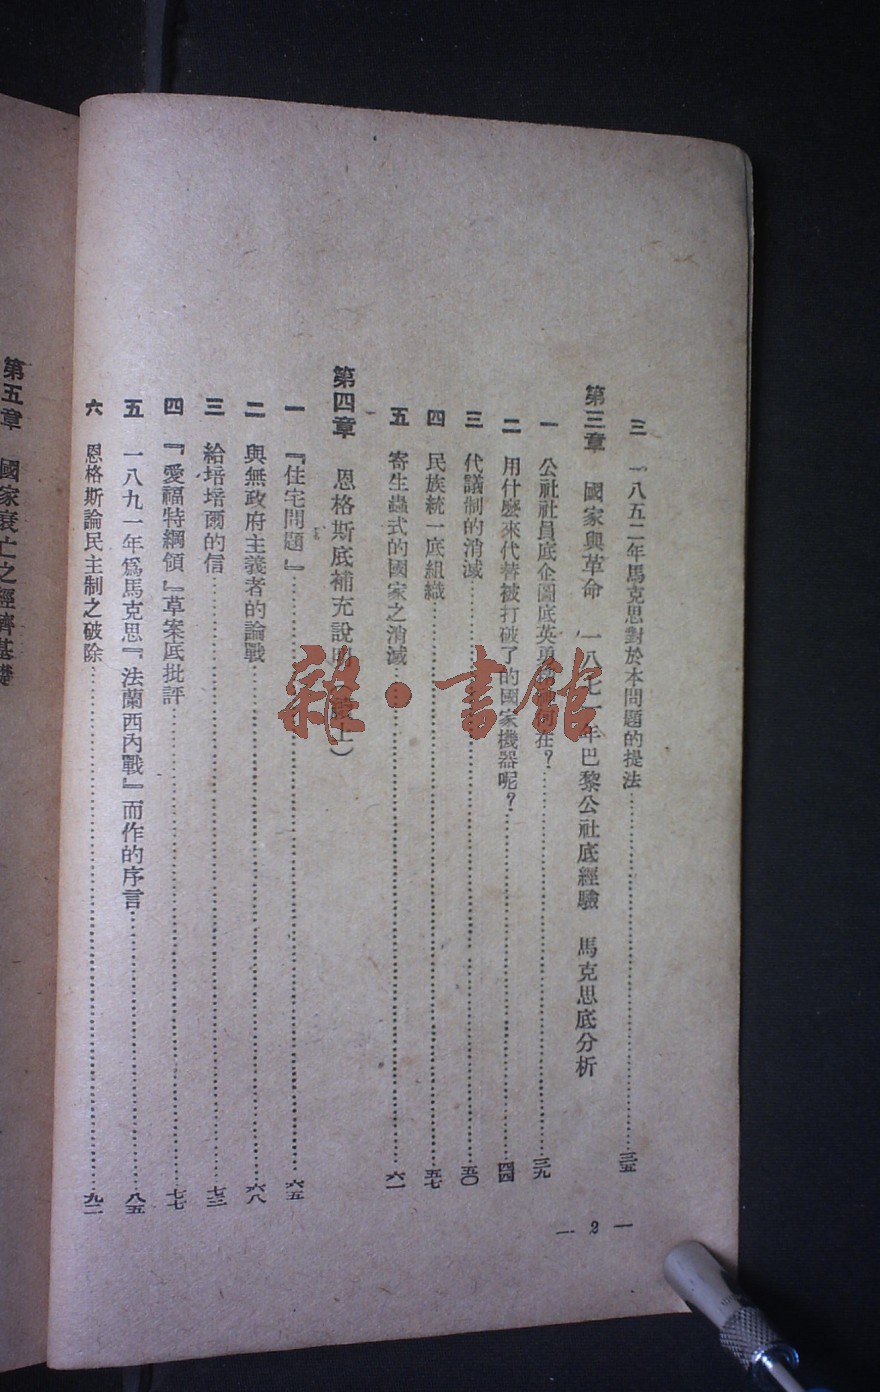 三 一八五二年馬克思對於本問題的提法……三五
第三章 國家與革命 一八七一年巴黎公社底經驗 馬克思底分析
一 公社社員底企圖底英勇 何在？……三九
二 用什麽來代替被打破了的國家機器呢？……四四
三 代議制的消滅……五〇
四 民族統一底組織……五七
五 寄生蟲式的國家之消滅……六一
第四章 恩格斯底補充說明 上）
一 『住宅問題』……六五
二 與無政府主義者的論戰……六八
三 給培培爾的信……七三
四 『愛福特綱領』草案底批評……七七
五 一八九一年爲馬克思『法蘭西內戰』而作的序言……八五
六 恩格斯論民主制之破除……九二
— 2 —
第五章 國家衰亡之經濟基礎
雜·書館